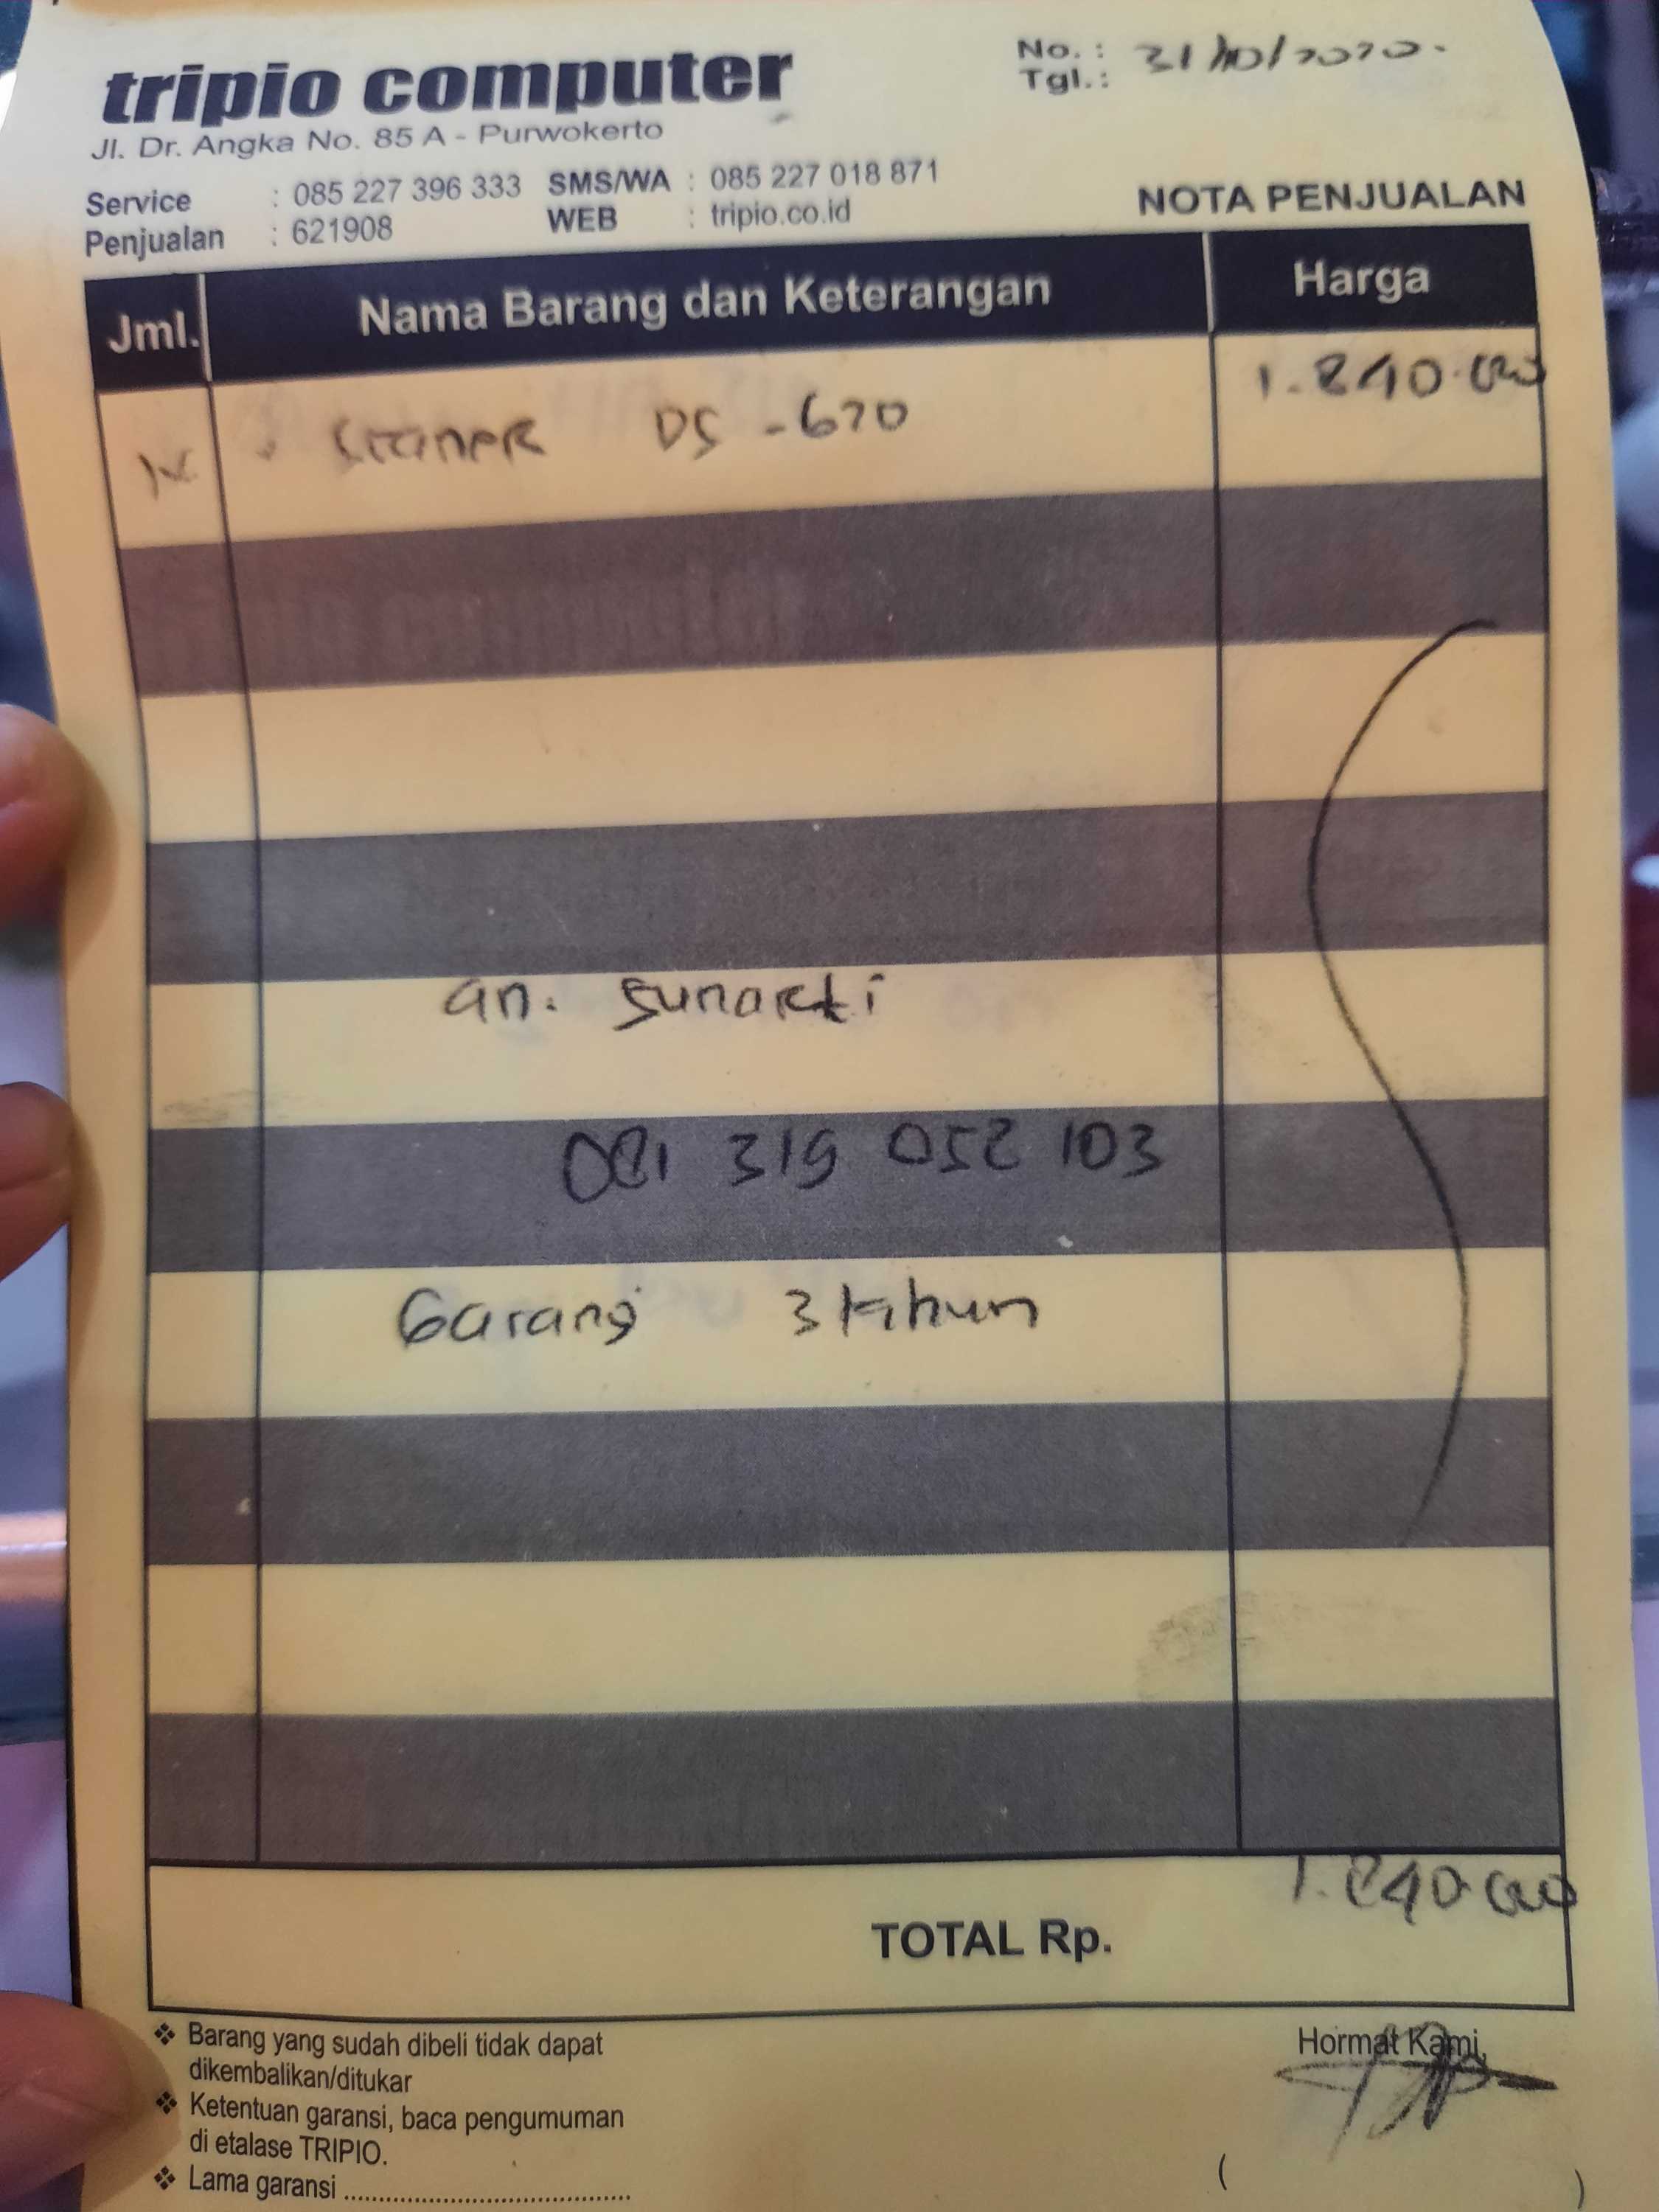 tripio computer
Jl. Dr. Angka No. 85 A - Purwokerto
No. :
Tgl. : 31/10/2020.
Service : 085 227 396 333 SMS/WA : 085 227 018 871
Penjualan : 621908 WEB : tripio.co.id
NOTA PENJUALAN
Jml. Nama Barang dan Keterangan Harga
DS - 670 1.840.000
an. Sunarti
081 319 052 103
Garansi 3 tahun
1.840.000
TOTAL Rp.
❖ Barang yang sudah dibeli tidak dapat
dikembalikan/ditukar
❖ Ketentuan garansi, baca pengumuman
di etalase TRIPIO.
❖ Lama garansi ..........................................
Hormat Kami,
( )